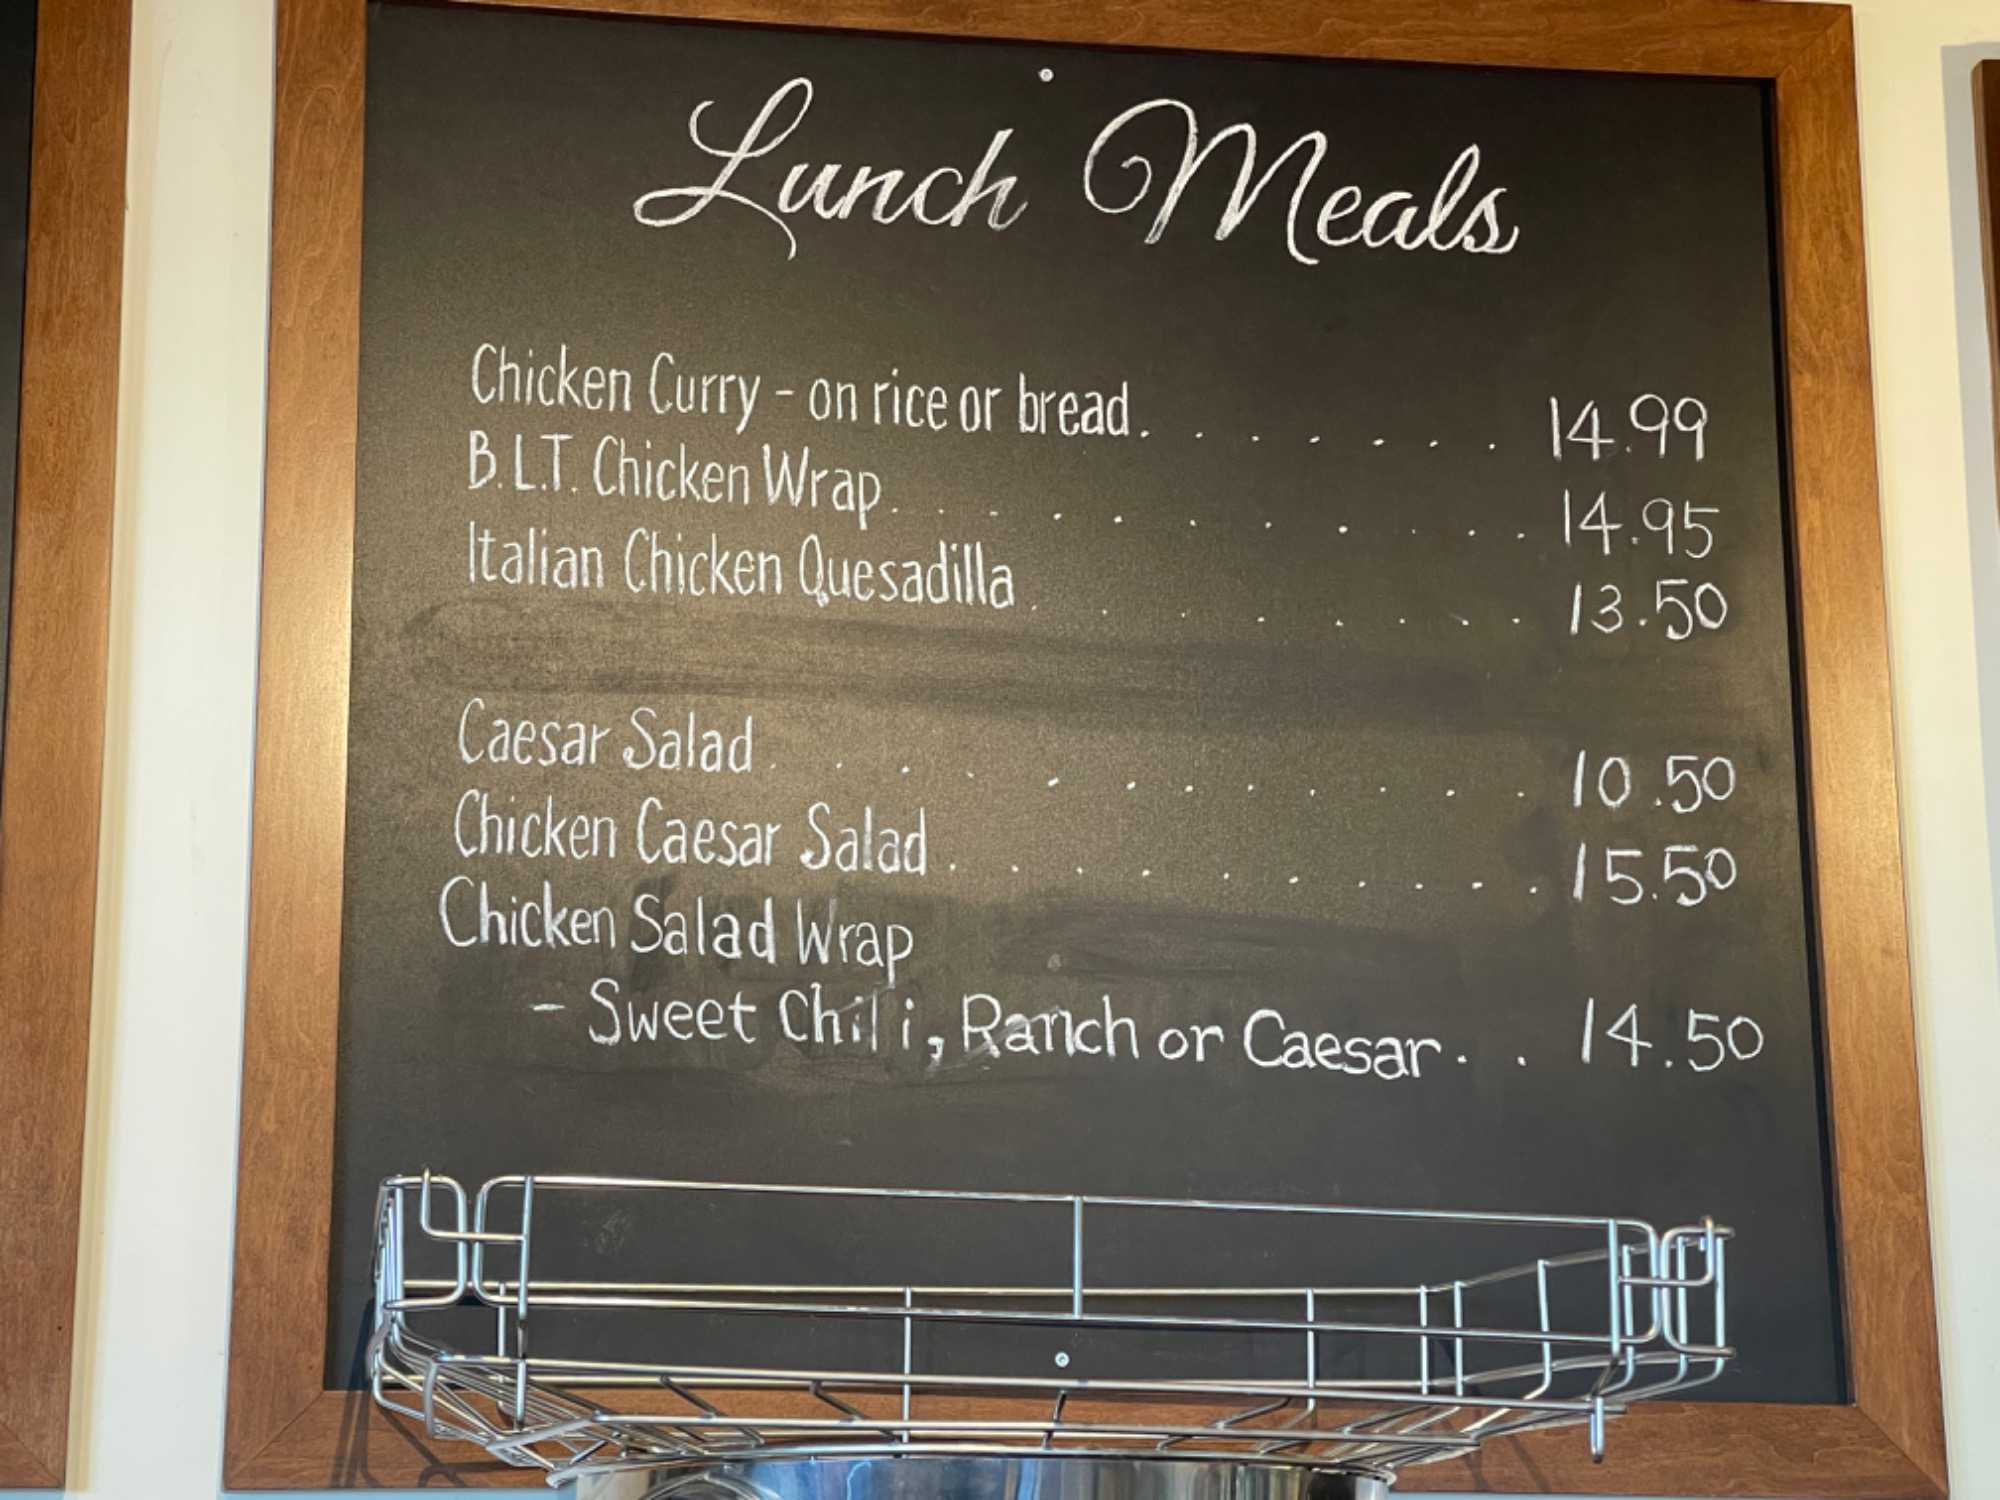 Lunch Meals
Chicken Curry - on rice or bread. . . . . . . 14.99
B.L.T. Chicken Wrap. . . . . . . . . . . 14.95
Italian Chicken Quesadilla. . . . . . . . 13.50
Caesar Salad. . . . . . . . . . . . 10.50
Chicken Caesar Salad. . . . . . . . . . 15.50
Chicken Salad Wrap
- Sweet Chili, Ranch or Caesar. . 14.50